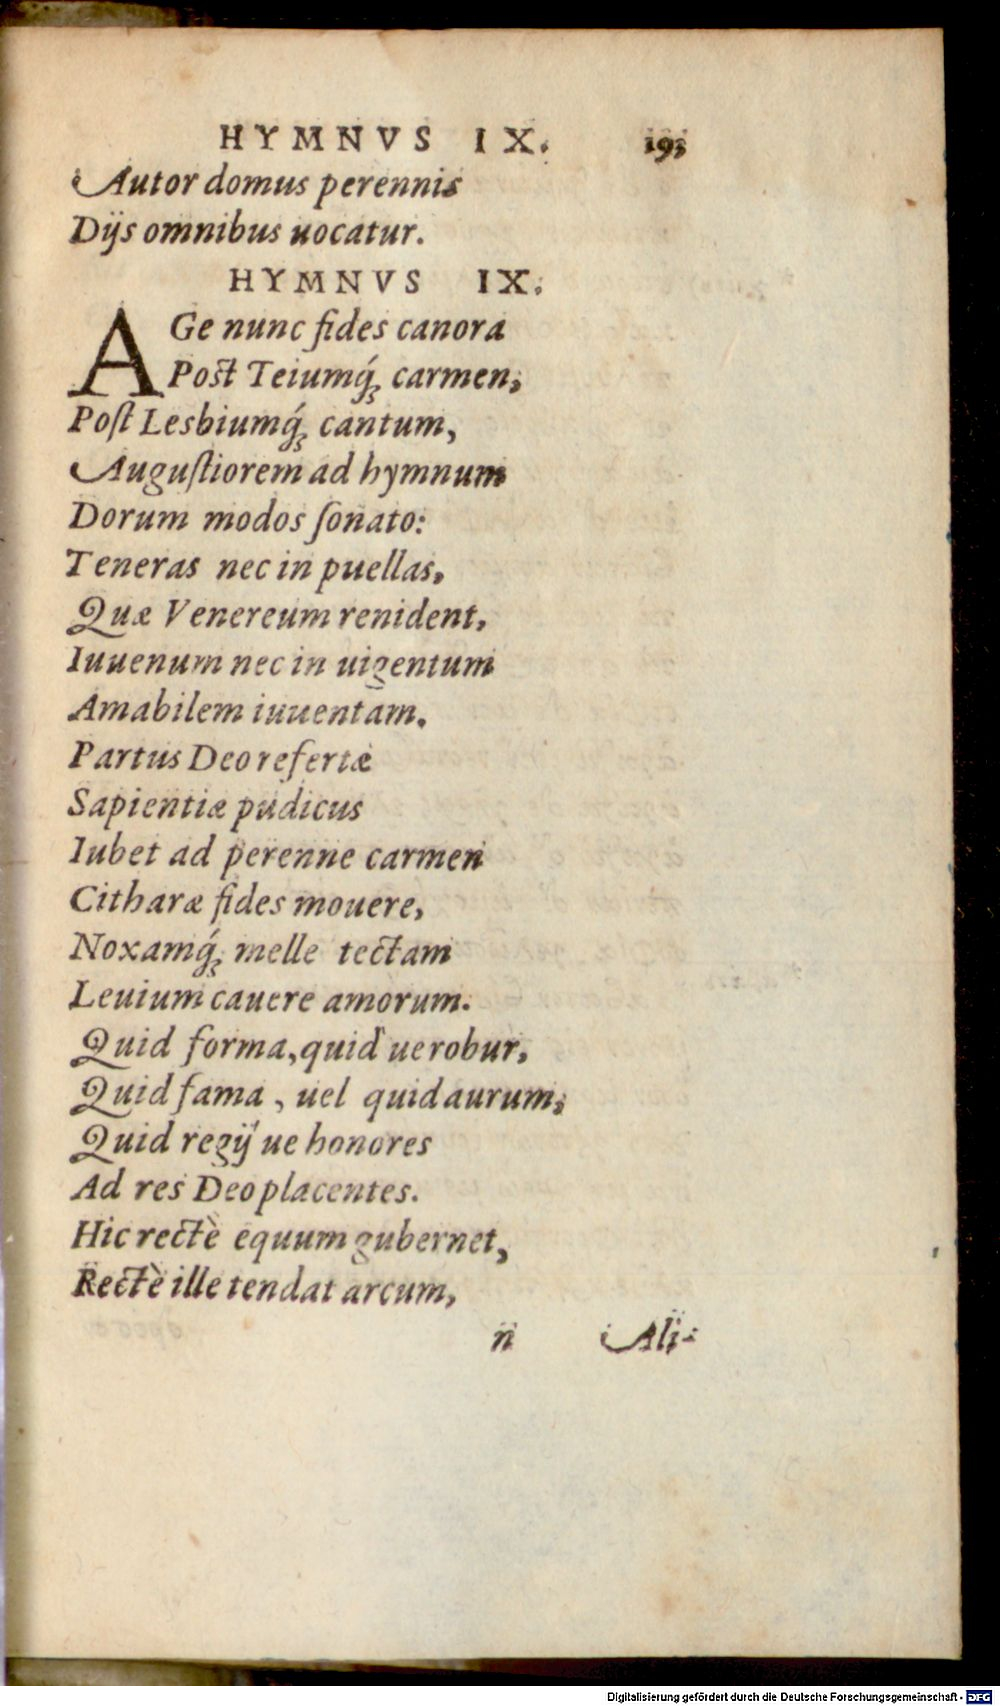 HYMNVS IX. 193
Autor domus perennis
Dijs omnibus uocatur.
HYMNVS IX.
AGe nunc fides canora
Post Teiumq́; carmen,
Poſt Lesbiumq́; cantum,
Auguſtiorem ad hymnum
Dorum modos ſonato:
Teneras nec in puellas,
Quæ Venereum renident,
Iuuenum nec in uigentum
Amabilem iuuentam.
Partus Deo refertæ
Sapientiæ pudicus
Iubet ad perenne carmen
Citharæ fides mouere,
Noxamq́; melle tectam
Leuium cauere amorum.
Quid forma, quid ue robur,
Quid fama, uel quid aurum,
Quid regij ue honores
Ad res Deo placentes.
Hic rectè equum gubernet,
Rectè ille tendat arcum,
n Ali-
Digitalisierung gefördert durch die Deutsche Forschungsgemeinschaft - DFG